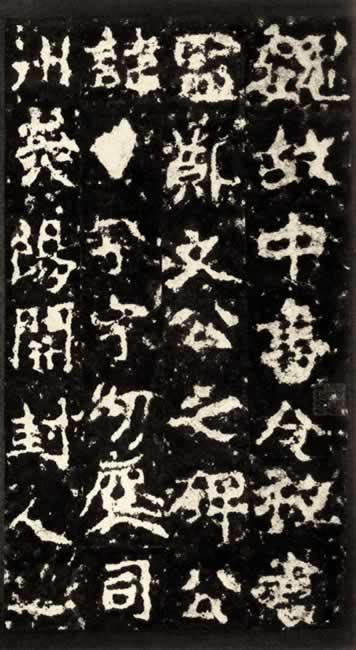 魏故中書令秘書
監鄭文公之碑公
諱字幼司
州熒陽開封人